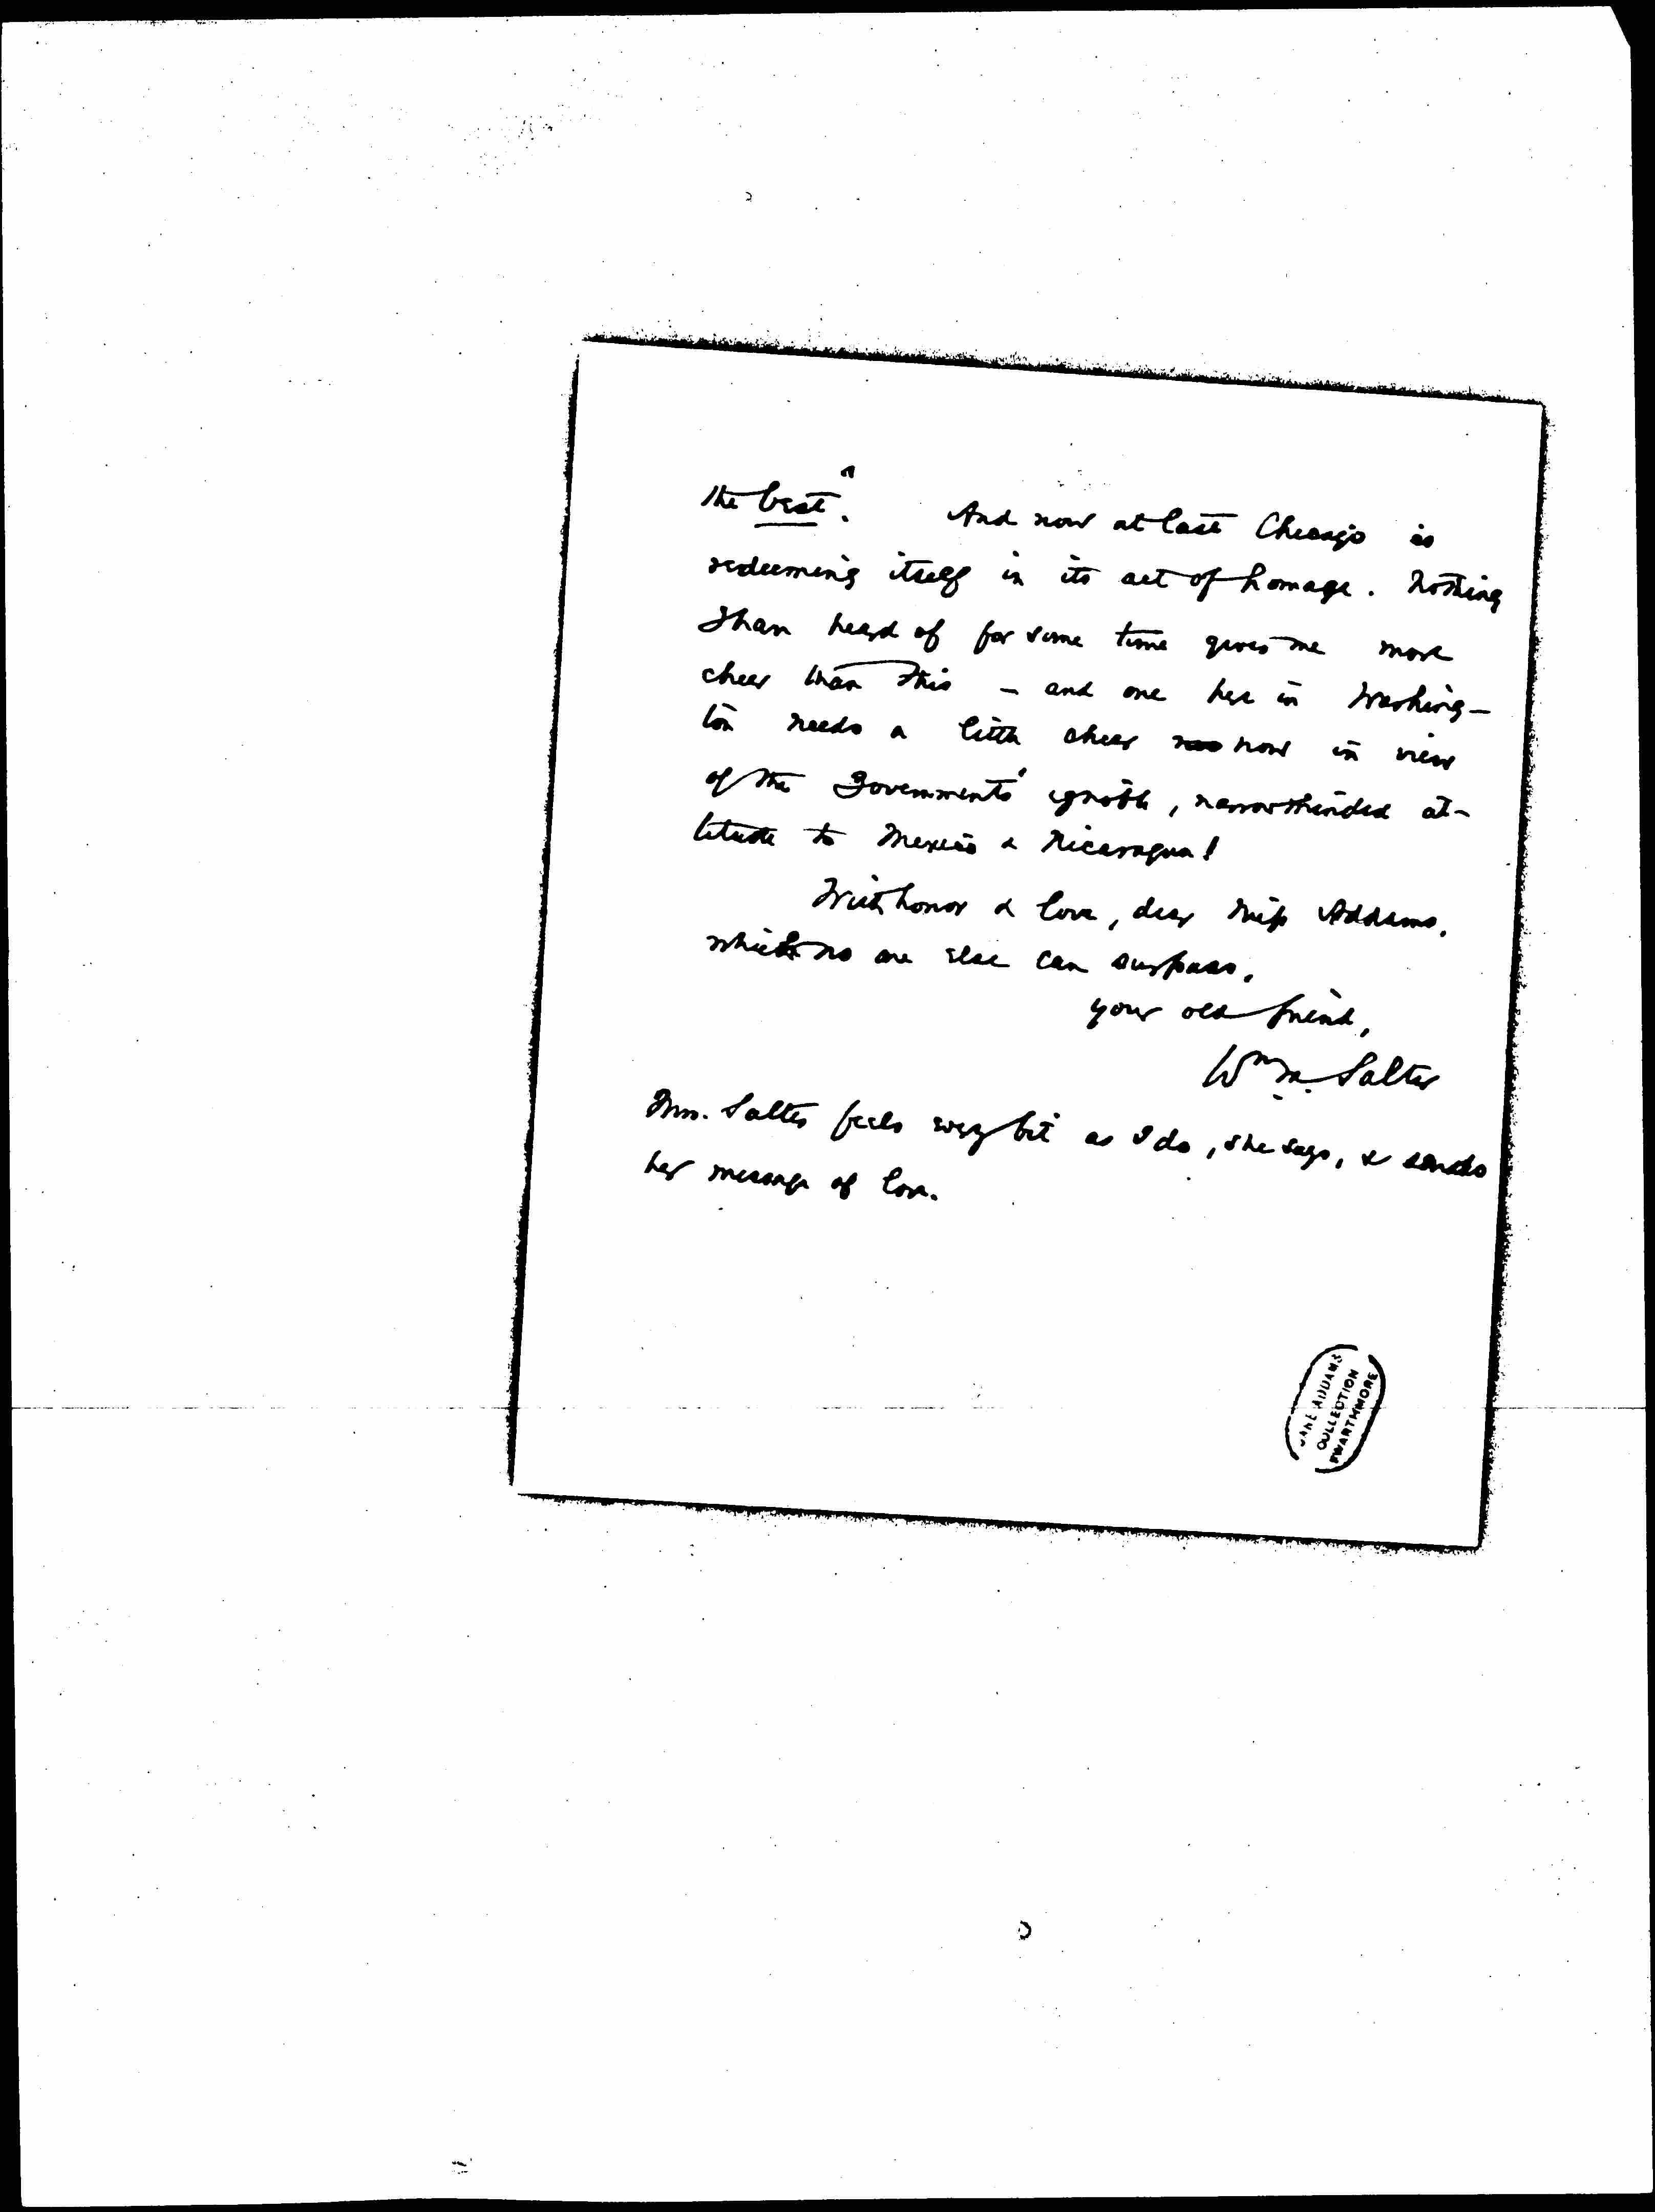 the best". And now at last Chicago is
redeeming itself in its act of homage. Nothing
I have heard of for some time gives me more
cheer than this – and one here in Washing-
ton needs a little cheer now in view
of the Government's ignoble, narrowminded at-
titude to Mexico & Nicaragua!
With honor & love, dear Miss Addams,
which no one else can surpass,
your old friend,
Wm M. Salter
Mrs. Salter feels every bit as I do, she says, & sends
her message of love.
JANE ADDAMS
COLLECTION
SWARTHMORE